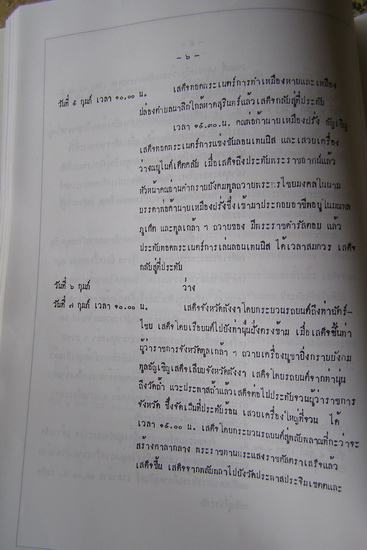 - ๖ -
วันที่ ๕ กุมภ์ เวลา ๑๐.๐๐ น. เสด็จทอดพระเนตร์การทำเหมืองหาบและเหมือง
ปล่องค่ายสมาลิกใกล้หาดสุรินทร์แล้วเสด็จกลับสู่ที่ประทับ
เวลา ๑๕.๓๐ น. คนแต่งก้านายเหมืองฝรั่ง อัญเชิญ
เสด็จทอดพระเนตร์การแข่งขันลอนเทนนิส และเสวยเครื่อง
ว่าง เมื่อเสด็จถึงประทับพระราชอาสน์แล้ว
หัวหน้า อ่านคำถวายชัยมงคลในนาม
บรรดา นายเหมืองฝรั่งซึ่งเข้ามาประกอบอาชีพอยู่ในมณฑล
ภูเก็ต และทูลเกล้า ฯ ถวายของ มีพระราชดำรัสตอบ แล้ว
ประทับทอดพระเนตร์การเล่นลอนเทนนิส ได้เวลาสมควร เสด็จ
กลับสู่ที่ประทับ
วันที่ ๖ กุมภ์ ว่าง
วันที่ ๗ กุมภ์ เวลา ๑๐.๐๐ น. เสด็จจังหวัดพังงาโดยกระบวนรถยนต์ถึงท่าฉัตร์-
ไชย เสด็จโดยเรือยนต์ไปยังท่านุ่นฝั่งตรงข้าม เมื่อเสด็จขึ้นท่า
ผู้ว่าราชการจังหวัดทูลเกล้า ฯ ถวายเครื่องบูชา
ทูลอัญเชิญเสด็จเลียบจังหวัดพังงา เสด็จโดยรถยนต์จากท่านุ่น
ถึงวัดถ้ำ แวะประพาสถ้ำแล้วเสด็จต่อไปประทับจวนผู้ว่าราชการ
จังหวัด ซึ่งจัดเป็นที่ประทับร้อน เสวยเครื่องใหญ่ที่จวน ได้
เวลา ๑๔.๐๐ น. เสด็จโดยกระบวนรถยนต์สู่ ที่กะว่าจะ
สร้างศาลากลาง พระราชทาน แล้ว
เสด็จขึ้น เสด็จจากพลับพลาไปยังวัดประพาสประจิมเขตต์และ